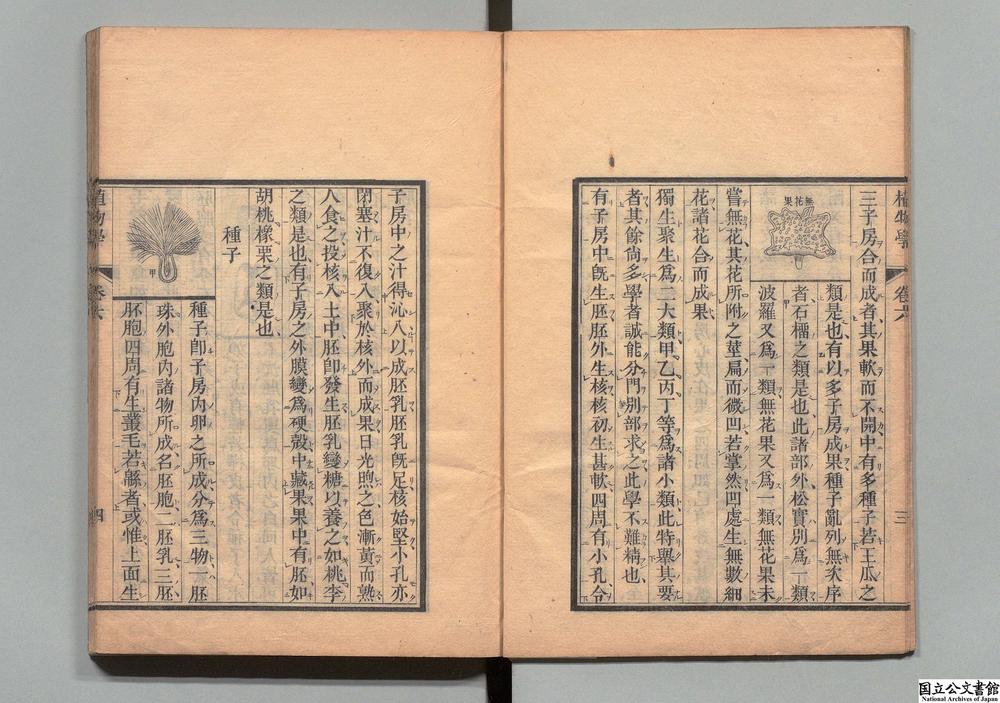 植物學 卷六 三
三子房合而成者其果軟而不開中有多種子若王瓜之
類是也有以多子房成果種子亂列無次序
者石橊之類是也此諸部外松實別爲一類
波羅又爲一類無花果又爲一類無花果未
無花果
嘗無花其花所附之莖扁而微凹若掌然凹處生無數細
花諸花合而成果
獨生聚生爲二大類甲乙丙丁等爲諸小類此特舉其要
者其餘尙多學者誠能分門別部求之此學不難精也
有子房中旣生胚胚外生核核初生甚軟四周有小孔令
子房中之汁得沁入以成胚乳胚乳旣足核始堅小孔亦
閉塞汁不復入聚於核外而成果日光煦之色漸黃而熟
人食之投核入土中胚卽發生胚乳變糖以養之如桃李
之類是也有子房之外膜變爲硬殼中藏果果中有胚如
胡桃橡栗之類是也
種子
種子卽子房內卵之所成分爲三物一胚
珠外胞內諸物所成名胚胞二胚乳三胚
胚胞四周有生叢毛若緜者或惟上面生
甲
植物學 卷六 四
国立公文書館
National Archives of Japan